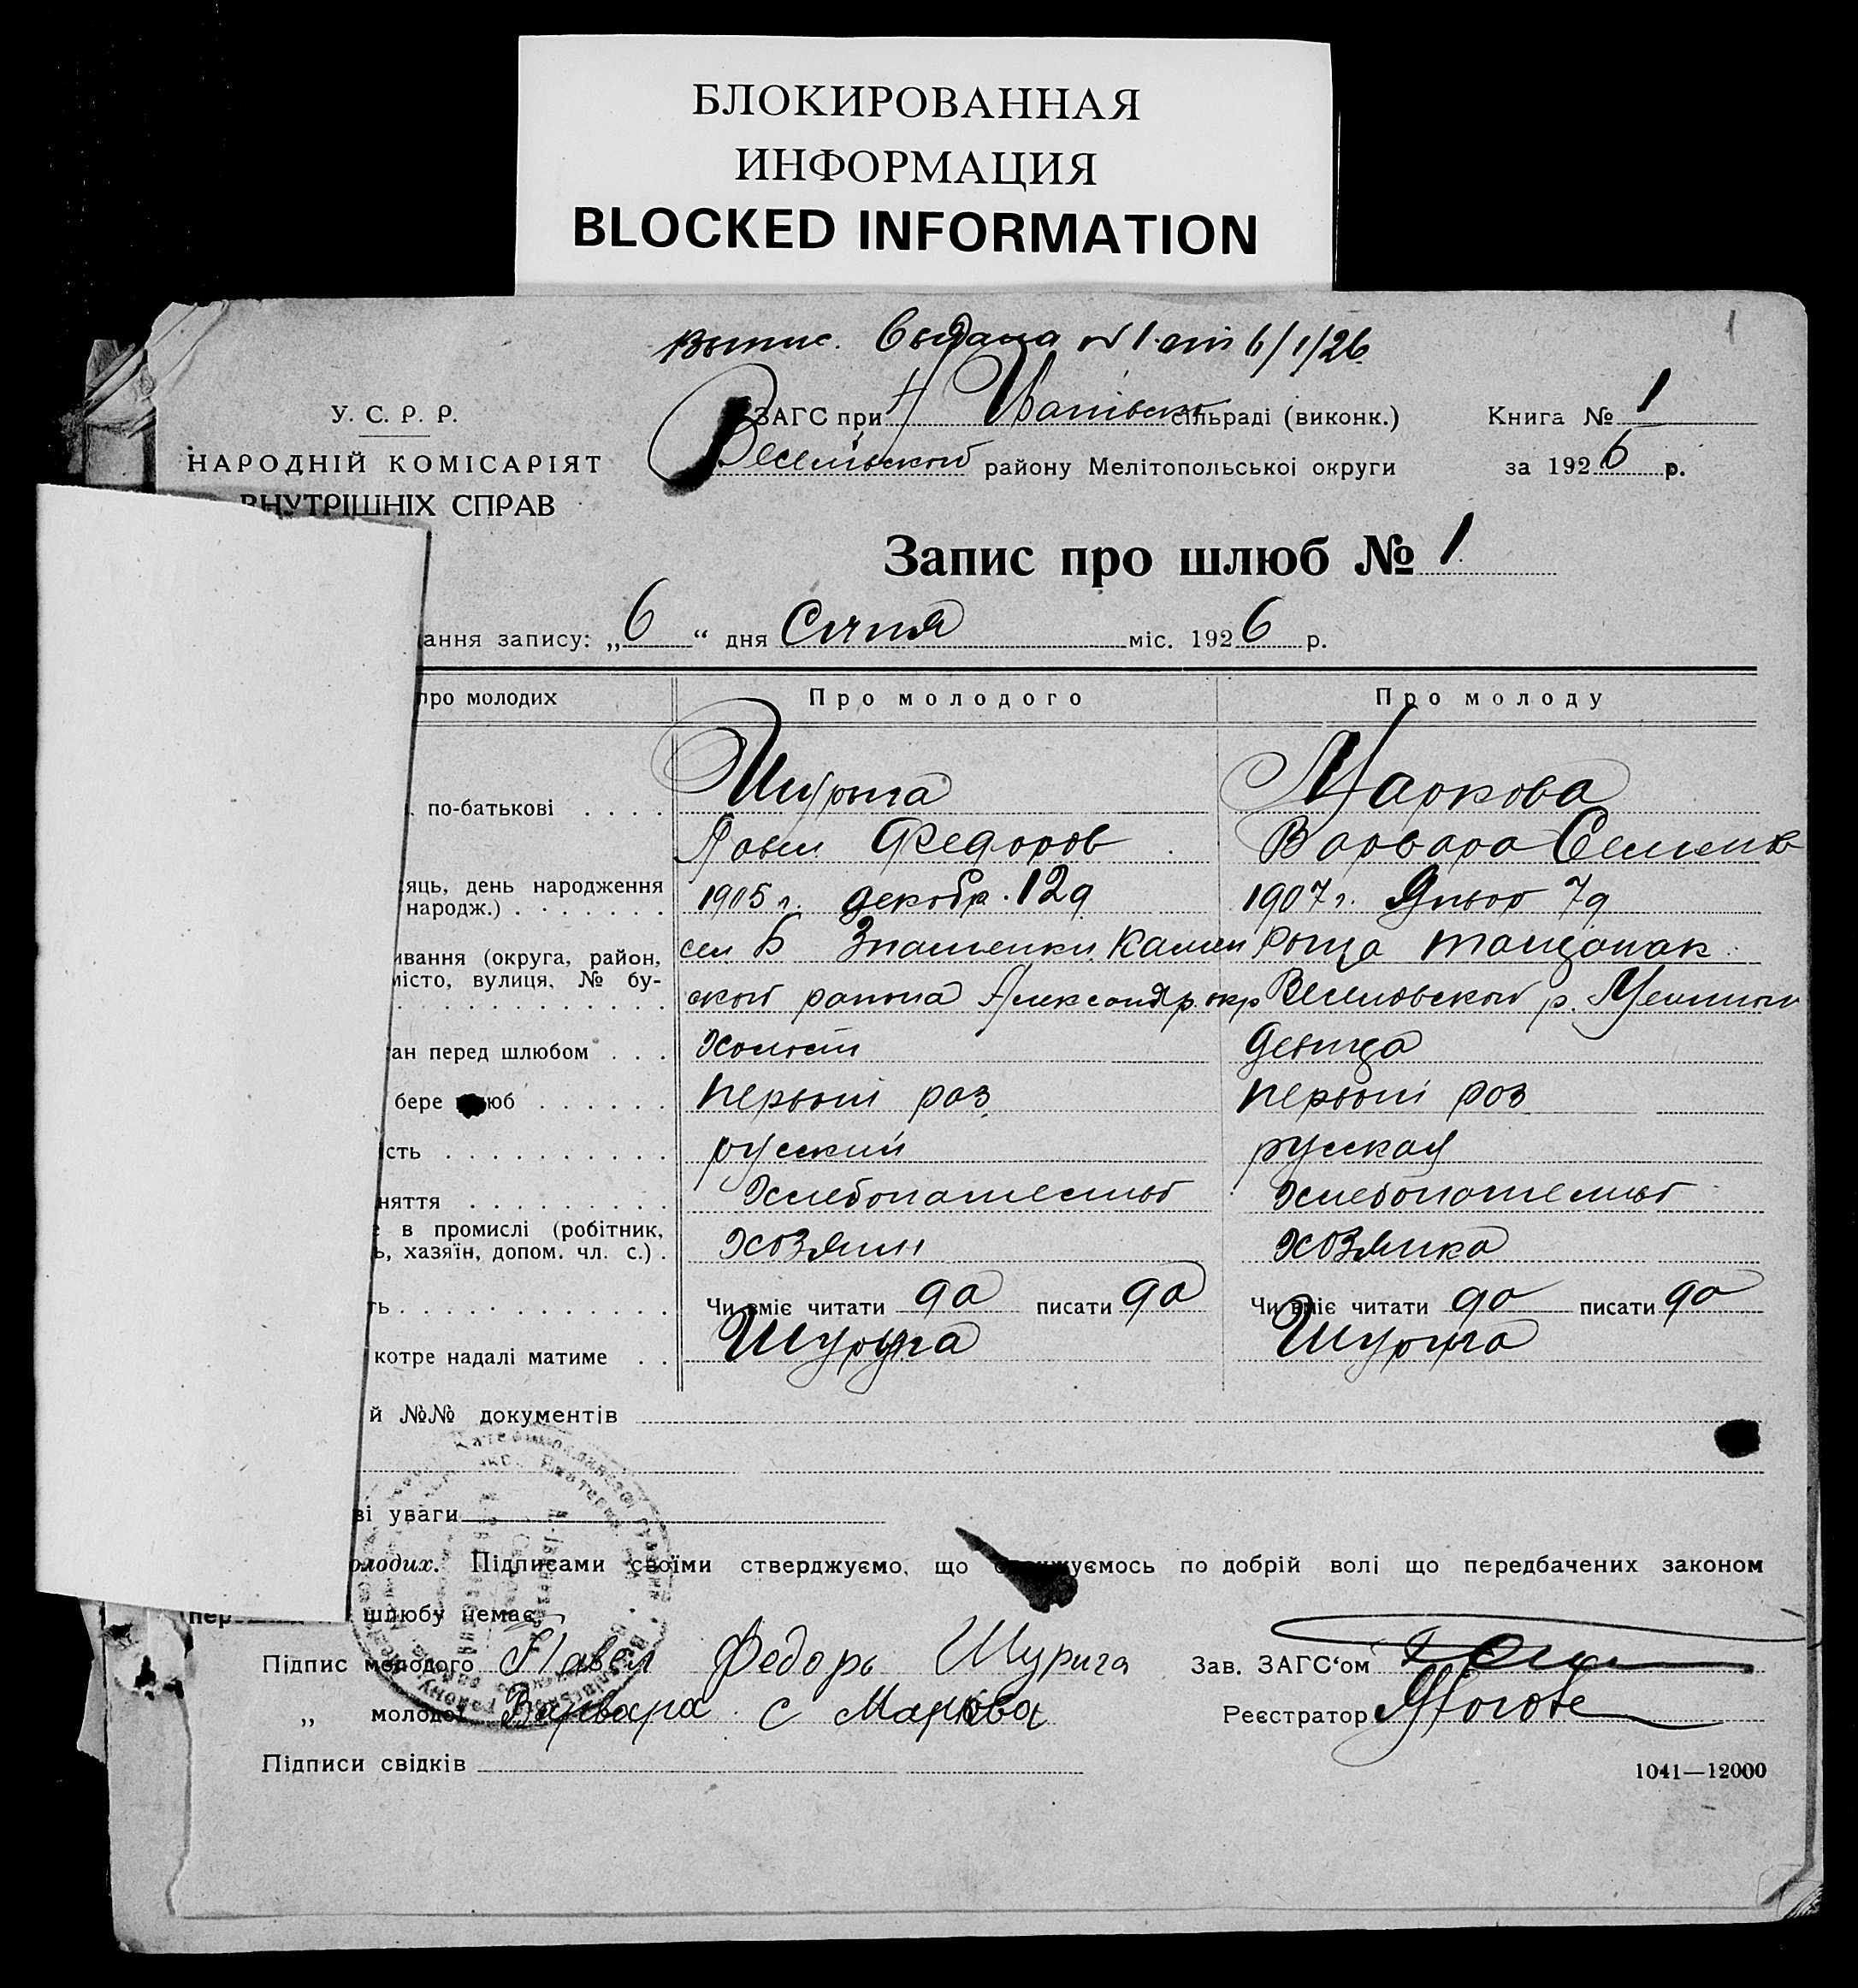 БЛОКИРОВАННАЯ
ИНФОРМАЦИЯ
BLOCKED INFORMATION
1
Выпис. Выдана № 1 от 6/1/26
У. С. Р. Р.
НАРОДНІЙ КОМІСАРІЯТ
ВНУТРІШНІХ СПРАВ
ЗАГС при Н Иванівско сільраді (виконк.) Книга № 1
Веселівської району Мелітопольської округи за 1926 р.
Запис про шлюб № 1
ання запису: „6“ дня Січня міс. 1926 р.
про молодих Про молодого Про молоду
по-батькові Шурыга Маркова
Павел Федоров Варвара Семенов
яць, день народження
народж.) 1905 г. декабр. 12д 1907 г. Январ 7д
ивання (округа, район, сел Б Знаменки Камен Роща
місто, вулиця, № бу- ской района Александр. окр Веселовской р. Мелитоп
ан перед шлюбом Холост Девица
бере шлюб первый раз первый раз
ість русский русская
няття Хлебопашество Хлебопашество
е в промислі (робітник,
ь, хазяїн, допом. чл. с.) хозяин хозяика
ть Чи вміє читати да писати да Чи вміє читати да писати да
котре надалі матиме Шурыга Шурыга
й №№ документів
ві уваги
олодих. Підписами своїми стверджуємо, що одружуємось по добрій волі що передбачених законом
пер шлюбу немає,
Підпис молодого Павел Федорь Шурига Зав. ЗАГС'ом
„ молодої Варвара С Маркова Реєстратор
Підписи свідків
1041—12000